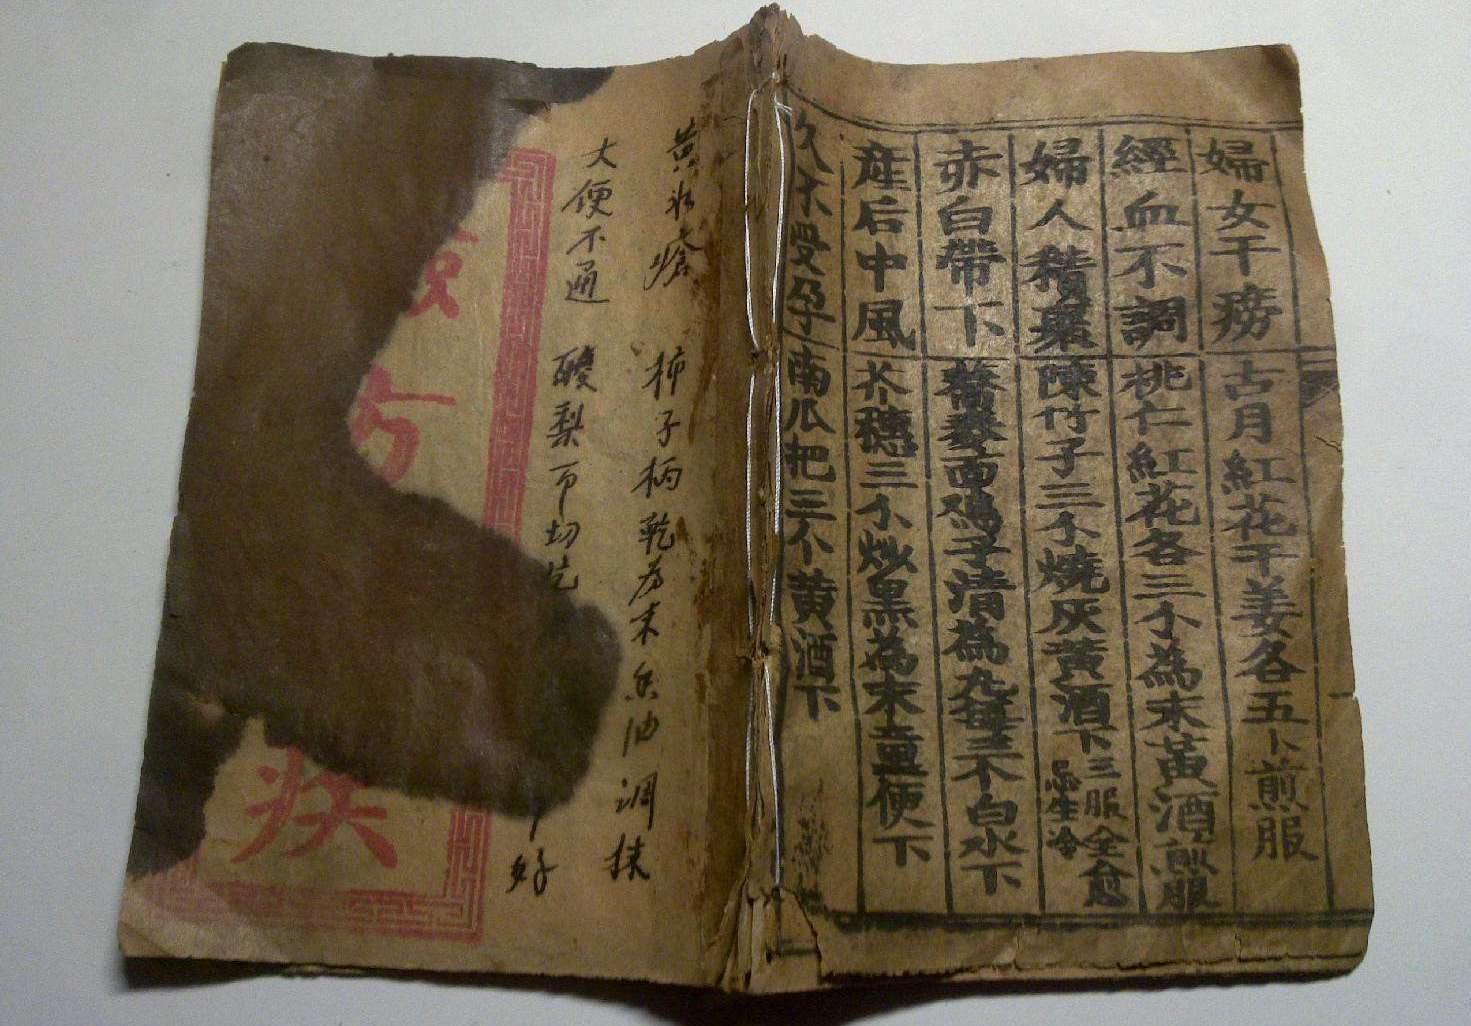 婦女干痨 古月紅花干姜各五卜煎服
經血不調 桃仁紅花各三个為末黃酒煎服
婦人積聚 陳竹子三个燒灰黃酒下 三服全愈
忌生冷
赤白帶下 蕎麥面鳮子清為丸每三个白水下
産后中風 芥穗三个炒黑為末童便下
久不受孕 南瓜把三个黄酒下
黄水瘡 柿子柄乾為末 香油调抹
大便不通 酸梨 切片
好
方